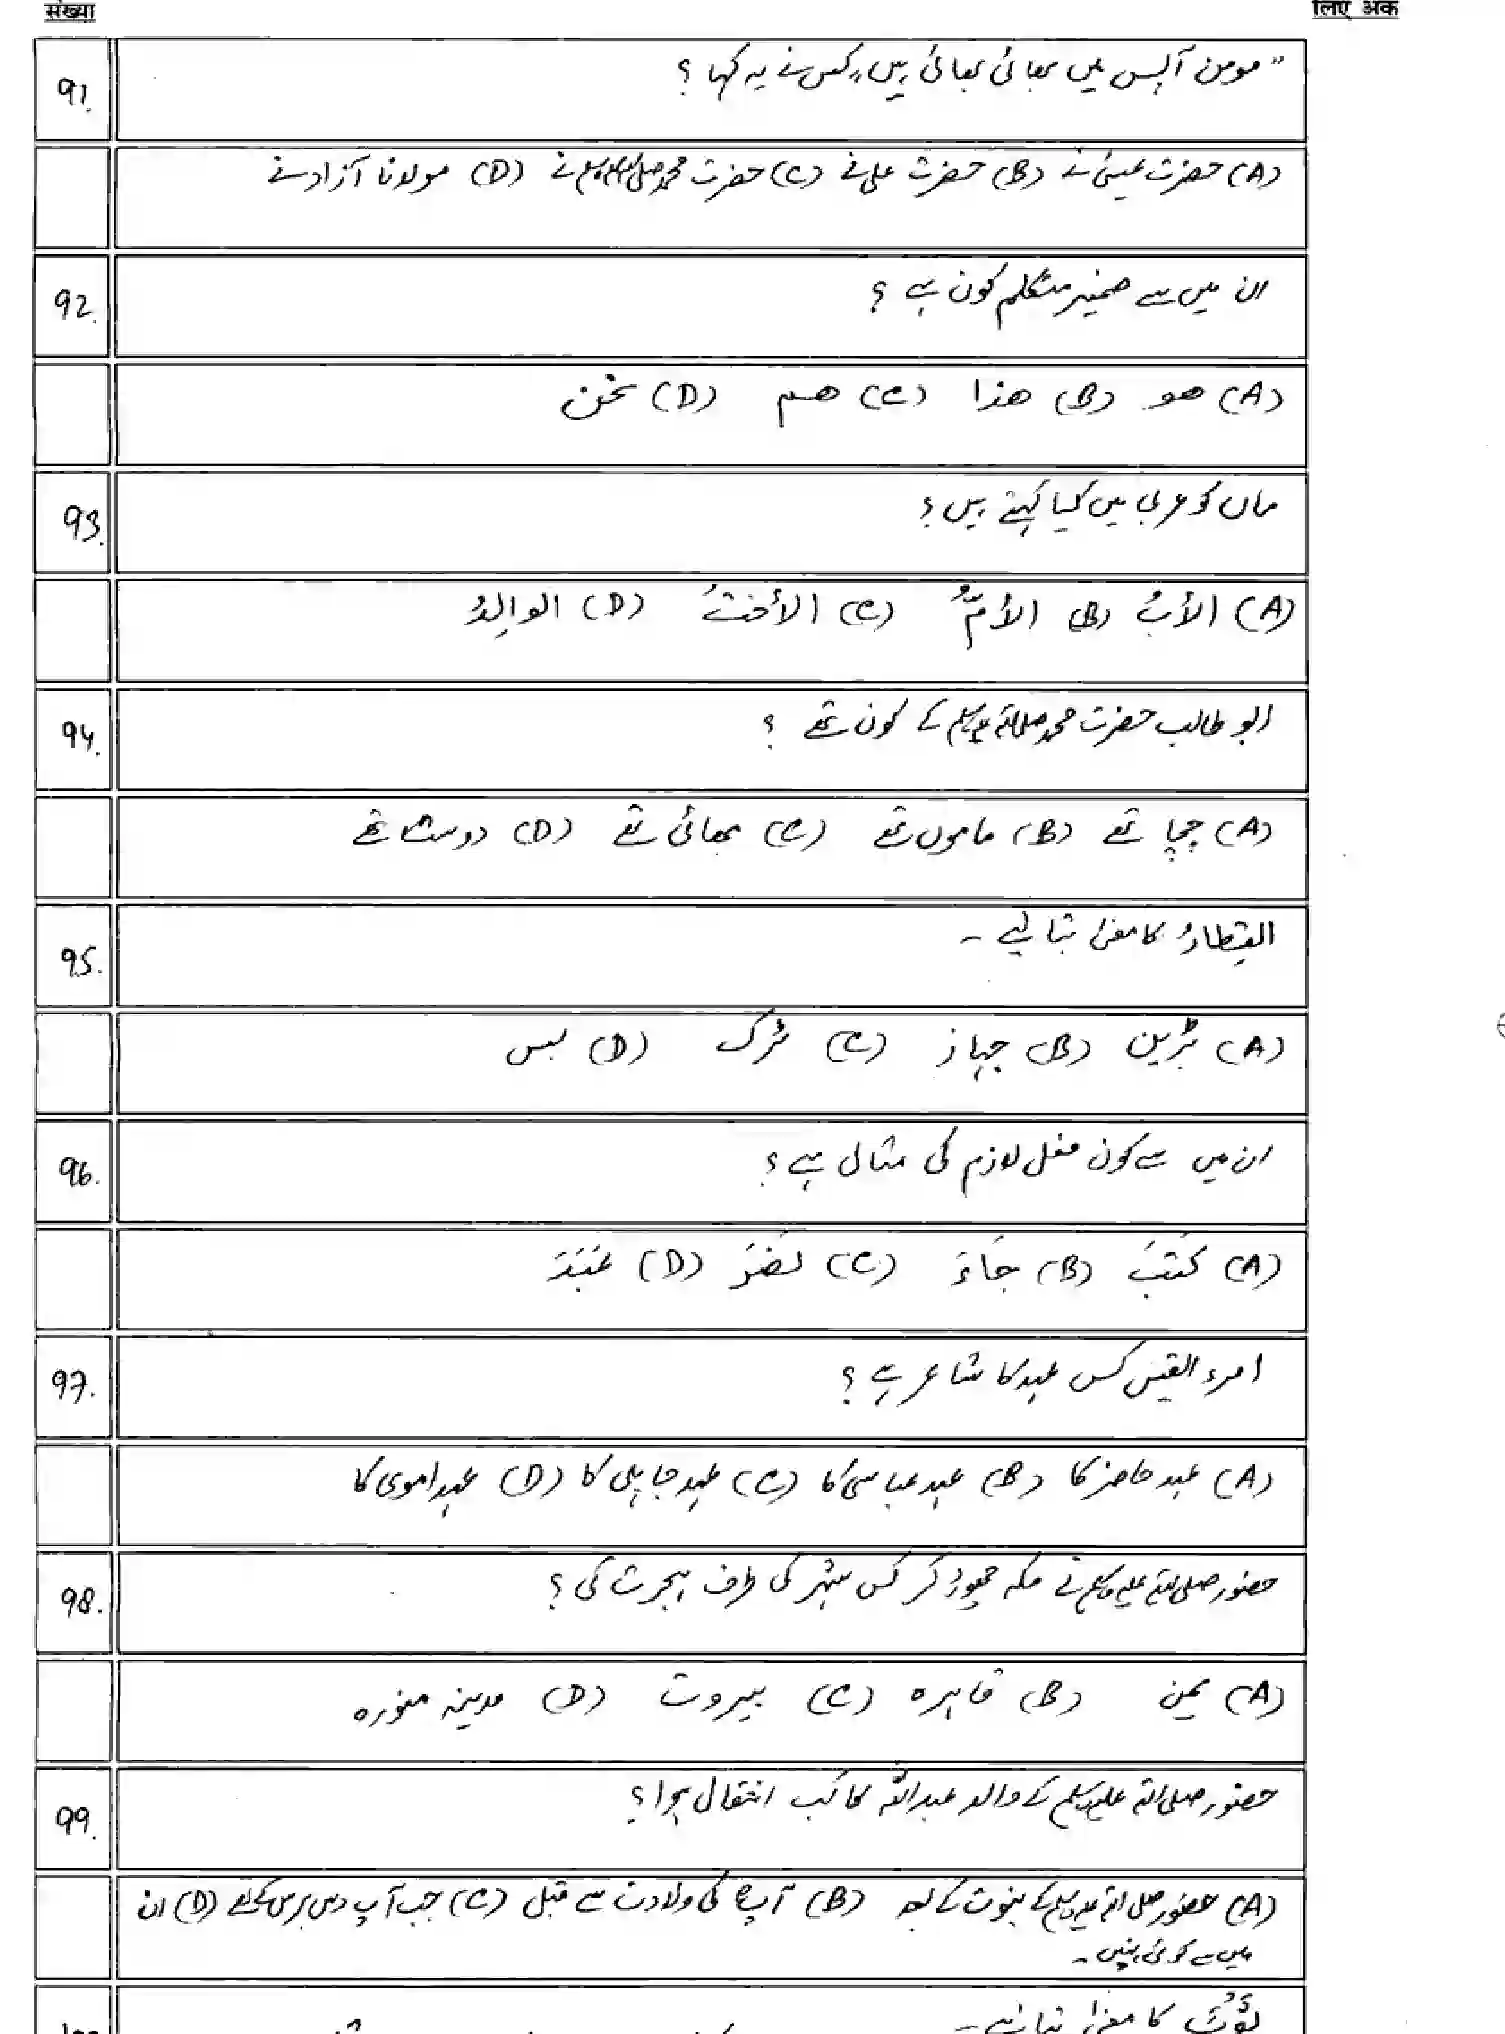 संख्या
लिए अंक
91.
" مومن آپس میں بھائی بھائی ہیں " کس نے یہ کہا ؟
(A) حضرت عیسیٰ نے (B) حضرت علی نے (C) حضرت محمد صلی اللہ علیہ وسلم نے (D) مولانا آزاد نے
92.
ان میں سے ضمیر متکلم کون ہے ؟
(A) ھو (B) ھذا (C) ھم (D) نحن
93.
ماں کو عربی میں کیا کہتے ہیں ؟
(A) الأبُ (B) الأمُّ (C) الأختُ (D) الوالِدُ
94.
ابو طالب حضرت محمد صلی اللہ علیہ وسلم کے کون تھے ؟
(A) چچا تھے (B) ماموں تھے (C) بھائی تھے (D) دوست تھے
95.
القِطارُ کا معنیٰ بتائیے ۔
(A) ٹرین (B) جہاز (C) ٹرک (D) بس
96.
ان میں سے کون فعل لازم کی مثال ہے ؟
(A) كَتَبَ (B) جَاءَ (C) نَصَرَ (D) عَبَدَ
97.
امرء القیس کس عہد کا شاعر ہے ؟
(A) عہد حاضر کا (B) عہد عباسی کا (C) عہد جاہلی کا (D) عہد اموی کا
98.
حضور صلی اللہ علیہ وسلم نے مکہ چھوڑ کر کس شہر کی طرف ہجرت کی ؟
(A) یمن (B) قاہرہ (C) بیروت (D) مدینہ منورہ
99.
حضور صلی اللہ علیہ وسلم کے والد عبداللہ کا کب انتقال ہوا ؟
(A) حضور صلی اللہ علیہ وسلم کے نبوت کے بعد (B) آپ کی ولادت سے قبل (C) جب آپ دس برس کے تھے (D) ان
میں سے کوئی نہیں ۔
کا معنیٰ بتائیے ۔